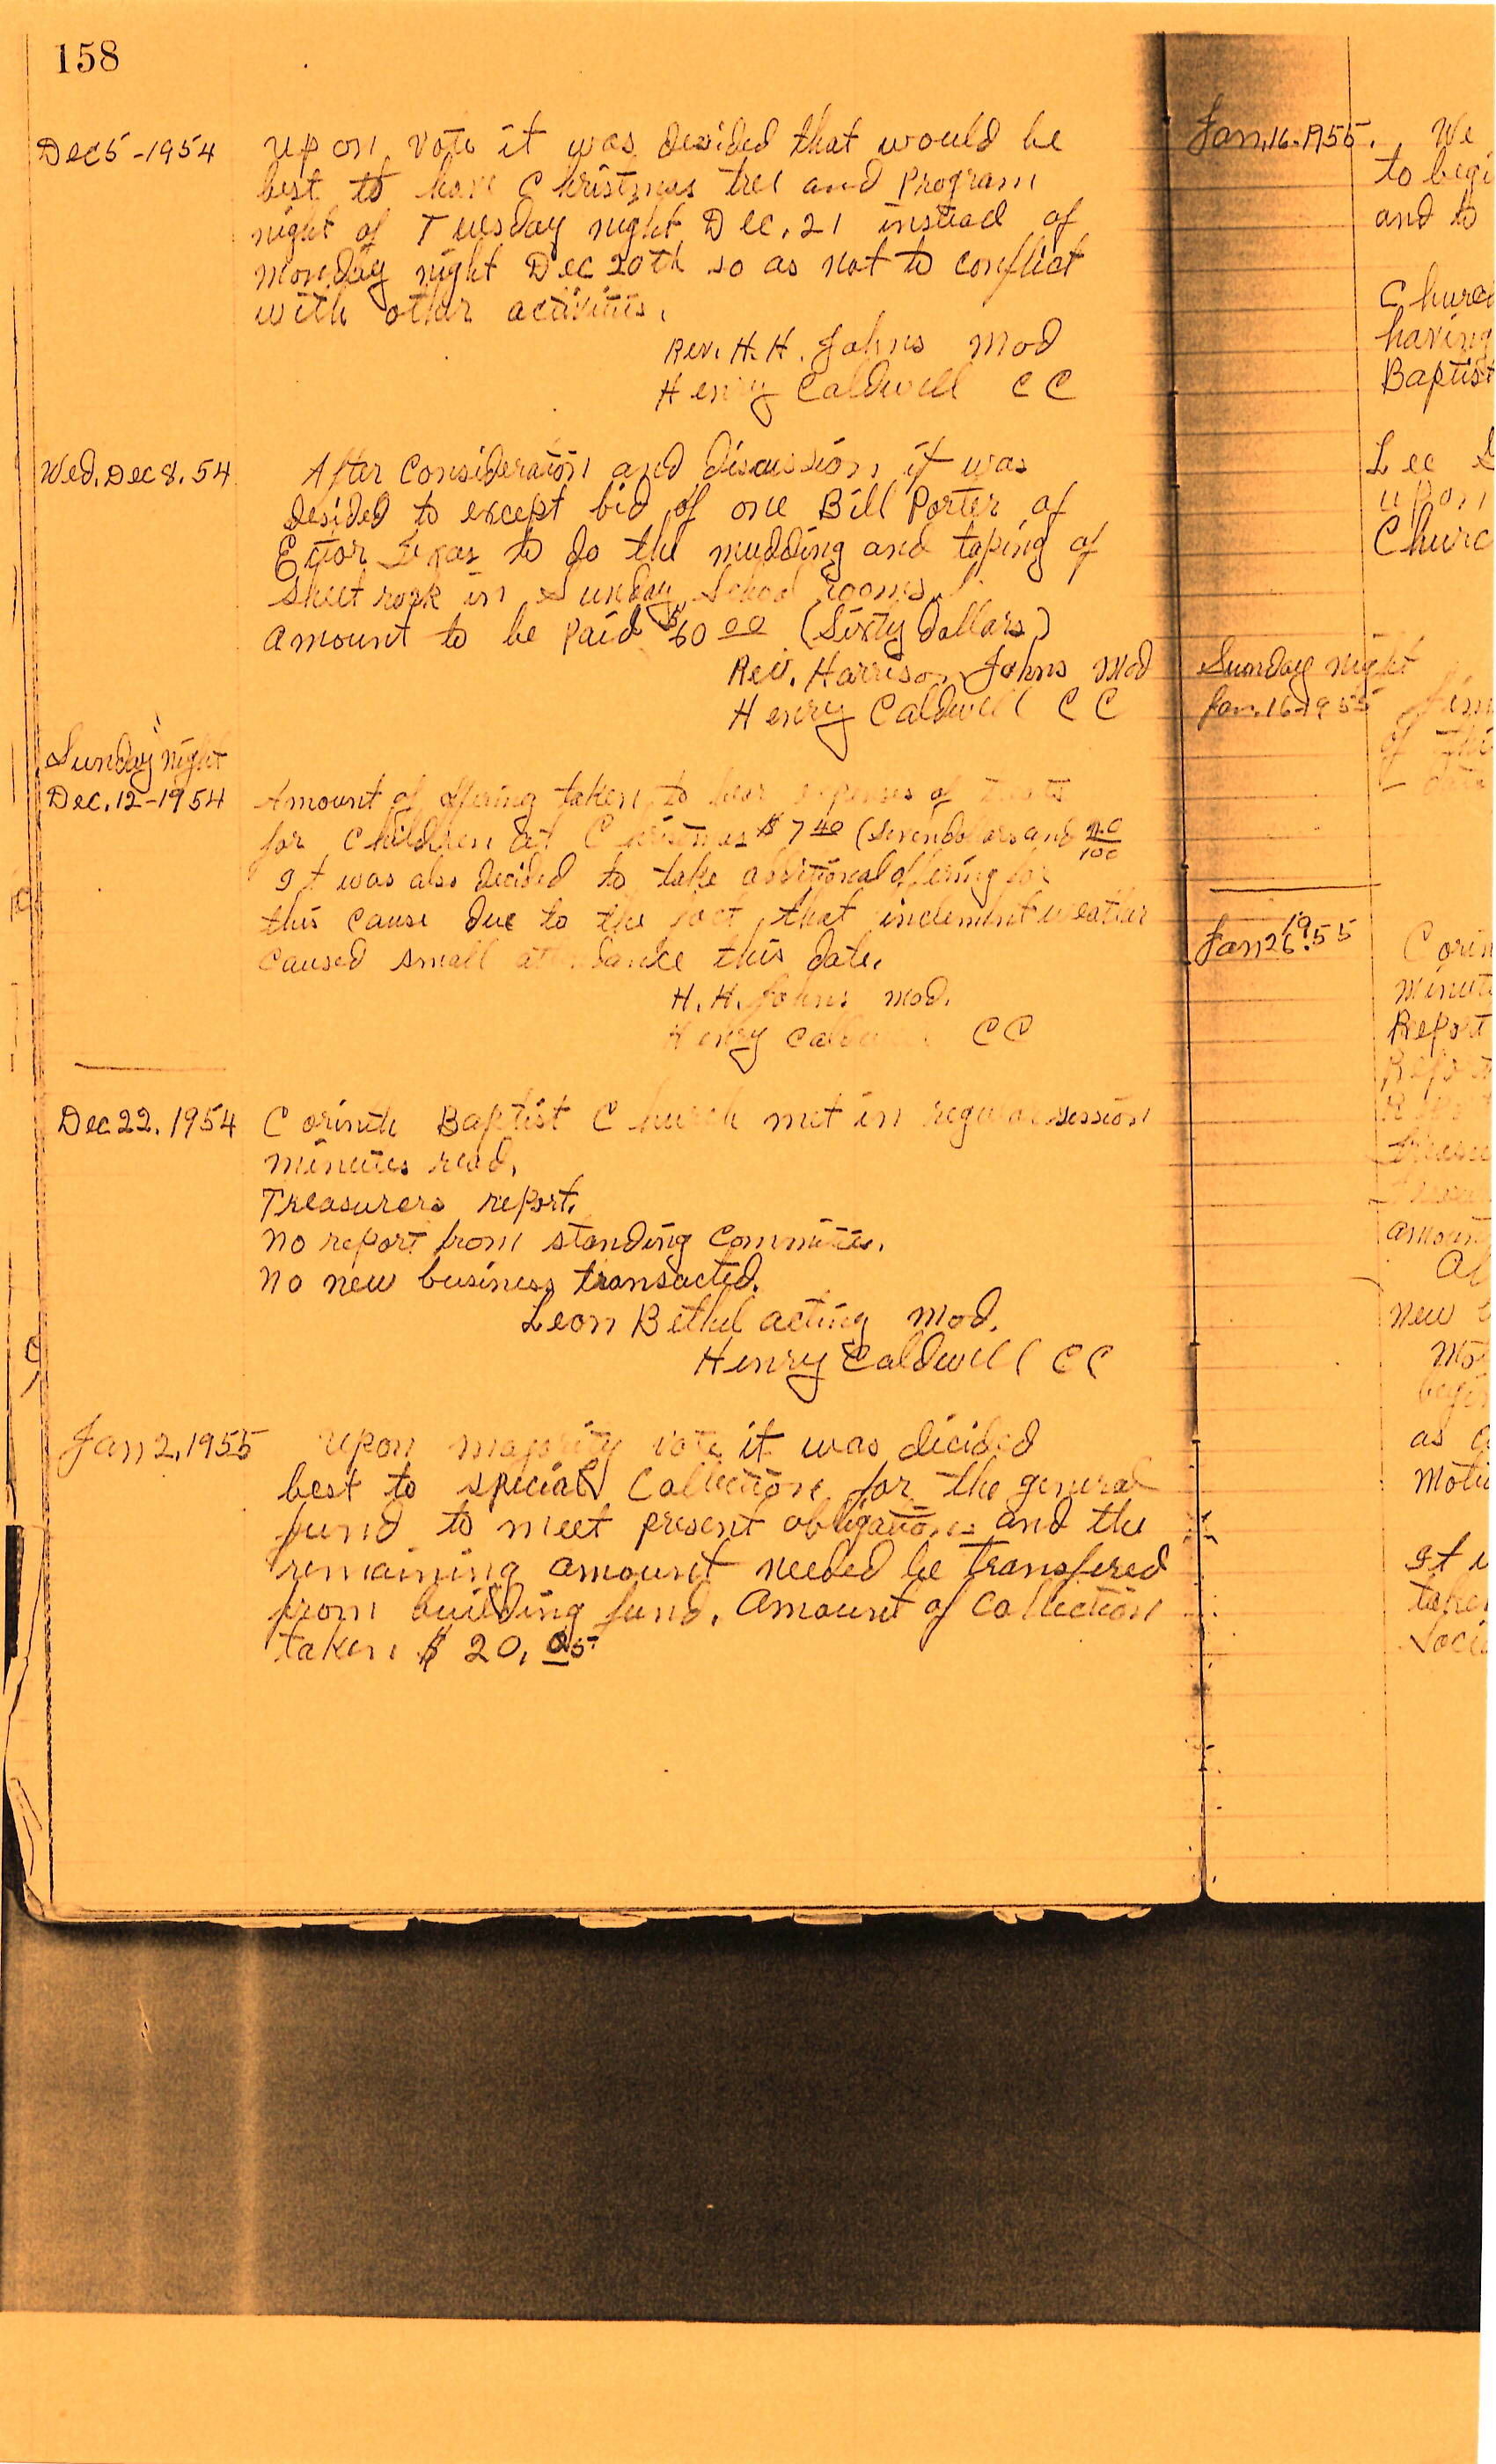 158
Dec 5-1954 upon vote it was desided that would be
best to have Christmas tree and Program
night of Tuesday night Dec. 21 instead of
monday night Dec 20th so as not to conflict
with other activities.
Rev. H. H. Johns Mod
Henry Caldwell CC
Wed, Dec 8. 54 After Consideration and discussion it was
desided to except bid of one Bill Porter of
Ector Texas to do the mudding and taping of
sheet rock in Sunday School rooms.
amount to be paid $60 00 (Sixty dollars)
Rev. Harrison Johns Mod
Henry Caldwell CC
Sunday night
Dec, 12-1954 Amount of offering taken to bear expenses of treats
for Children at Christmas $7 40 (Seven dollars and 40/100
It was also decided to take additional offering for
this cause due to the fact that inclement weather
caused small attendance this date.
H. H. Johns mod.
Henry Caldwell CC
Dec 22. 1954 Corinth Baptist Church met in regular session
minutes read.
Treasurers report.
no report from standing Committies.
no new business transacted.
Leon Bethel acting mod.
Henry Caldwell CC
Jan 2, 1955 upon majority vote it was decided
best to special Collection for the general
fund to meet present obligations and the
remaining amount needed be transfered
from building fund. Amount of Collection
taken $ 20. 05
Jan, 16-1955. We
to begi
and to
Churc
having
Baptist
Lee
upon
Churc
Sunday night
Jan. 16-1955
of thi
date
Jan 26. 1955 Corin
minut
Report
Repor
Repor
treasu
amoun
new
Mo
begi
as a
moti
It
taken
Soci